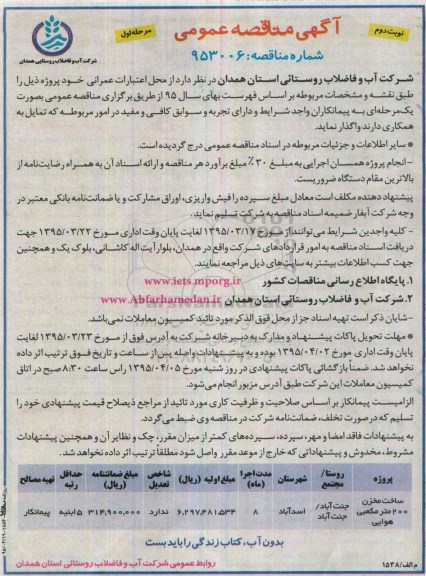 آگهی مناقصه عمومی
نوبت دوم
مرحله اول
شماره مناقصه: ۹۵۳۰۰۶
شرکت آب و فاضلاب روستایی استان همدان
شرکت آب و فاضلاب روستائی استان همدان در نظر دارد از محل اعتبارات عمرانی خود پروژه ذیل را
طبق نقشه و مشخصات مربوطه بر اساس فهرست بهای سال ۹۵ از طریق برگزاری مناقصه عمومی بصورت
یک مرحله‌ای به پیمانکاران واجد شرایط و دارای تجربه و سوابق کافی و مفید در امور مربوطه که تمایل به
همکاری دارند واگذار نماید.
* سایر اطلاعات و جزئیات مربوطه در اسناد مناقصه عمومی درج گردیده است.
-انجام پروژه همسان اجرایی به مبلغ ۳۰٪ مبلغ برآورد هر مناقصه و ارائه اسناد آن به همراه رضایت‌نامه از
بالاترین مقام دستگاه ضروریست.
پیشنهاد دهنده مکلف است معادل مبلغ سپرده را فیش واریزی، اوراق مشارکت و یا ضمانت‌نامه بانکی معتبر در
وجه شرکت آبفار ضمیمه اسناد مناقصه به شرکت تسلیم نماید.
- کلیه واجدین شرایط می توانند از مورخ ۱۳۹۵/۰۳/۱۷ لغایت پایان وقت اداری مورخ ۱۳۹۵/۰۳/۲۲ جهت
دریافت اسناد مناقصه به امور قراردادهای شرکت واقع در همدان، بلوار آیت اله کاشانی، بلوک یک و همچنین
جهت کسب اطلاعات بیشتر به سایت‌های ذیل مراجعه نمایند.
۱. پایگاه اطلاع رسانی مناقصات کشور www.iets.mporg.ir
۲. شرکت آب و فاضلاب روستائی استان همدان www.Abfarhamedan.ir
-شایان ذکر است تهیه اسناد جز از محل فوق الذکر مورد تائید کمیسیون معاملات نمی‌باشد.
* مهلت تحویل پاکات پیشنهاد و مدارک به دبیرخانه شرکت به آدرس فوق از مورخ ۱۳۹۵/۰۳/۲۳ لغایت
پایان وقت اداری مورخ ۱۳۹۵/۰۴/۰۲ بوده و به پیشنهادات واصله پس از ساعت و تاریخ فوق ترتیب اثر داده
نخواهد شد. ضمناً بازگشائی پاکات پیشنهادی در روز شنبه مورخ ۱۳۹۵/۰۴/۰۵ راس ساعت ۸:۳۰ صبح در اتاق
کمیسیون معاملات این شرکت طبق آدرس مزبور انجام می‌شود.
الزامیست پیمانکار بر اساس صلاحیت و ظرفیت کاری مورد تائید از مراجع ذیصلاح قیمت پیشنهادی خود را
تسلیم که در صورت تخلف، ضمانت‌نامه شرکت در مناقصه وی ضبط می‌گردد.
به پیشنهادات فاقد امضا و مهر، سپرده، سپرده‌های کمتر از میزان مقرر، چک و نظایر آن و همچنین پیشنهادات
مشروط، مخدوش و پیشنهاداتی که خارج از موعد مقرر واصل شود مطلقاً ترتیب اثر داده نخواهد شد.
پروژه روستا/مجتمع شهرستان مدت اجرا (ماه) مبلغ اولیه (ریال) شاخص تعدیل مبلغ ضمانتنامه (ریال) حداقل رتبه تهیه مصالح
ساخت مخزن ۲۰۰ متر مکعبی هوایی جنت آباد/جنت آباد اسدآباد ۸ ۶,۲۹۷,۴۸۱,۵۳۴ ندارد ۳۱۴,۹۰۰,۰۰۰ ۵ ابنیه پیمانکار
بدون آب، کتاب زندگی را باید بست
روابط عمومی شرکت آب و فاضلاب روستائی استان همدان
م الف/۱۵۳۸